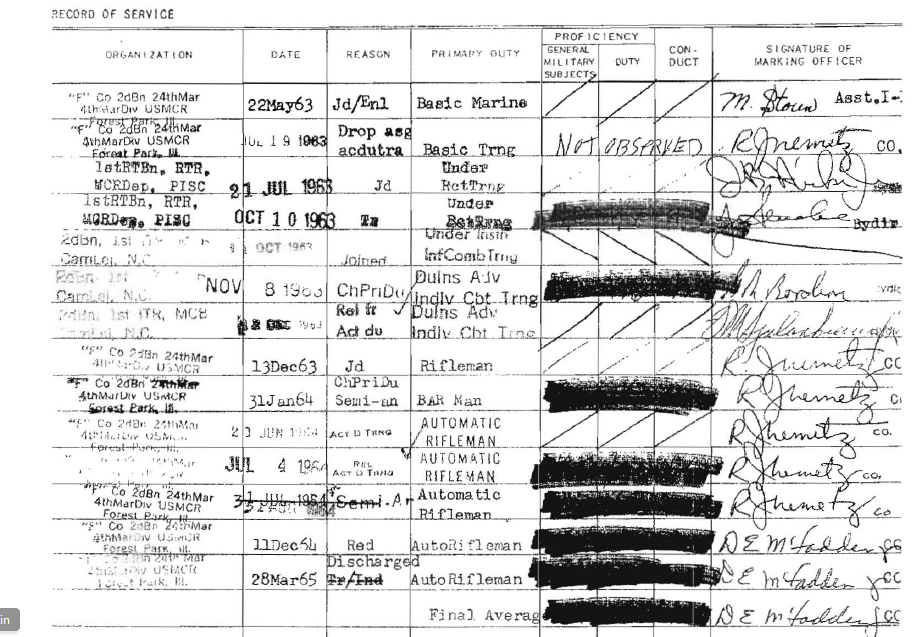 RECORD OF SERVICE
PROFICIENCY
ORGANIZATION DATE REASON PRIMARY DUTY GENERAL MILITARY SUBJECTS DUTY CON-DUCT SIGNATURE OF MARKING OFFICER
"F" Co 2dBn 24thMar
4thMarDiv USMCR 22May63 Jd/Enl Basic Marine Asst.I-I
Forest Park, Ill.
"F" Co 2dBn 24thMar Drop asg
4thMarDiv USMCR JUL 19 1963 acdutra Basic Trng NOT OBSERVED R Jhemetz CO.
Forest Park, Ill.
1stRTBn, RTR, Under
MCRDep, PISC 21 JUL 1963 Jd RctTrng
1stRTBn, RTR, Under
MCRDep, PISC OCT 10 1963 Tr RctTrng Bydir
2dBn, 1st Under Instn
CamLej, N.C. OCT 1963 Joined InfCombTrng
2dBn, 1st DuIns Adv
CamLej, N.C. NOV 8 1963 ChPriDu Indiv Cbt Trng
2dBn, 1st ITR, MCB Rel fr DuIns Adv
CamLej, N.C. DEC 1963 Act du Indiv Cbt Trng
"F" Co 2dBn 24thMar
4thMarDiv USMCR 13Dec63 Jd Rifleman R Jhemetz CO
"F" Co 2dBn 24thMar ChPriDu
4thMarDiv USMCR 31Jan64 Semi-an BAR Man R Jhemetz
Forest Park, Ill.
"F" Co 2dBn 24thMar AUTOMATIC
4thMarDiv USMCR JUN 1964 ACT D TRNG RIFLEMAN R Jhemetz CO.
Forest Park, Ill.
AUTOMATIC
JUL 4 1964 REL ACT D TRNG RIFLEMAN R Jhemetz CO.
"F" Co 2dBn 24thMar Automatic
4thMarDiv USMCR 31 JUL 1964 Semi-An Rifleman R Jhemetz CO
Forest Park, Ill.
"F" Co 2dBn 24thMar
4thMarDiv USMCR 11Dec64 Red AutoRifleman D E McFadden CO
Forest Park, Ill.
Co 2dBn 24th Mar Discharged
4thMarDiv USMCR 28Mar65 Tr/Ind AutoRifleman D E McFadden CO
Forest Park, Ill.
Final Averag D E McFadden CO
in